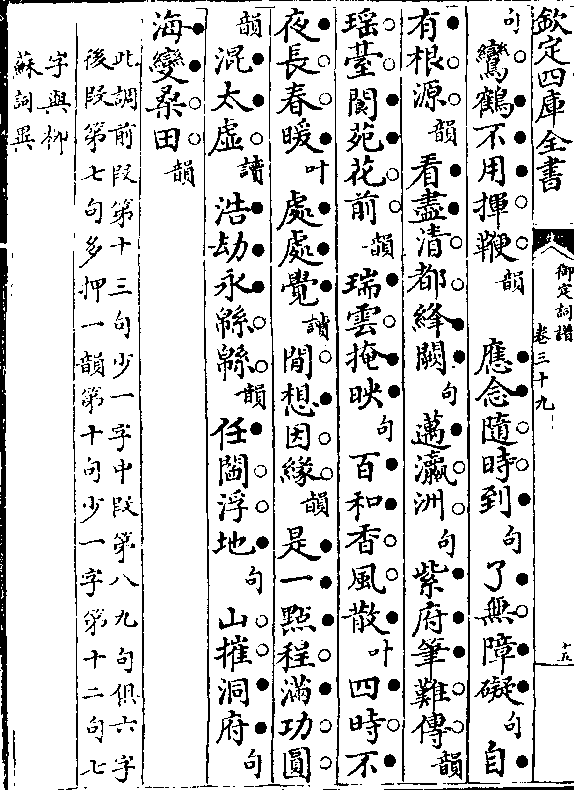 欽定四庫全書
御定詞譜
卷三十九
十五
句鸞鶴不用揮鞭韻應念隨時到句了無障礙句自
有根源韻看盡清都絳闕句邁瀛洲句紫府筆難傳韻
瑶臺閬苑花前韻瑞雲掩映句百和香風散叶四時不
夜長春暖叶處處覺讀閒想因緣韻是一點程滿功圓
韻混太虛讀浩劫永緜緜韻任閻浮地句山摧洞府句
海變桑田韻
此調前段第十三句少一字中段第八九句俱六字
後段第七句多押一韻第十句少一字第十二句七
字與柳
蘇詞異